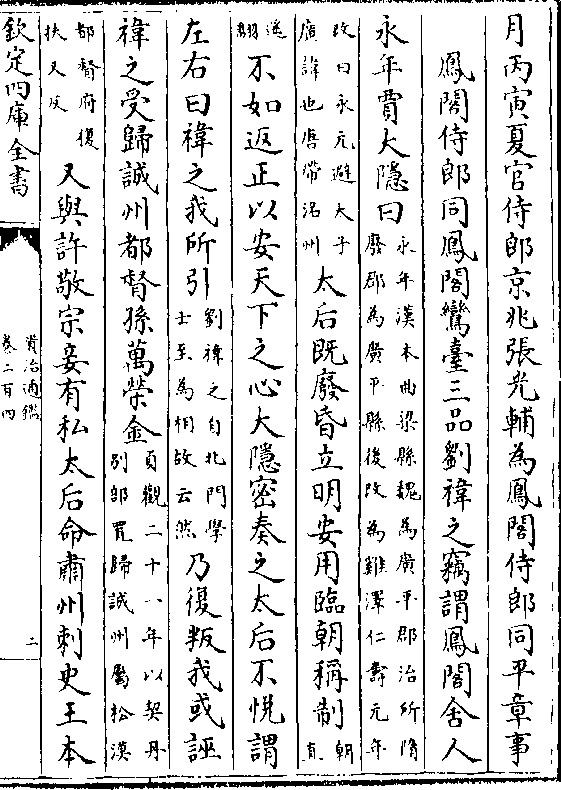 月丙寅夏官侍郎京兆張光輔為鳳閣侍郎同平章事
鳳閣侍郎同鳳閣鸞臺三品劉禕之竊謂鳳閣舍人
永年賈大隱曰永年漢本曲梁縣魏為廣平郡治所隋廢郡為廣平縣後改為雞澤仁壽元年
改曰永元避太子廣諱也唐帶洺州太后既廢昏立明安用臨朝稱制朝直
遥翻不如返正以安天下之心大隱密奏之太后不悅謂
左右曰禕之我所引劉禕之自北門學士至為相故云然乃復叛我或誣
禕之受歸誠州都督孫萬榮金貞觀二十一年以契丹別部置歸誠州屬松漠
都督府復扶又反又與許敬宗妾有私太后命肅州刺史王本
欽定四庫全書
資治通鑑
卷二百四
二